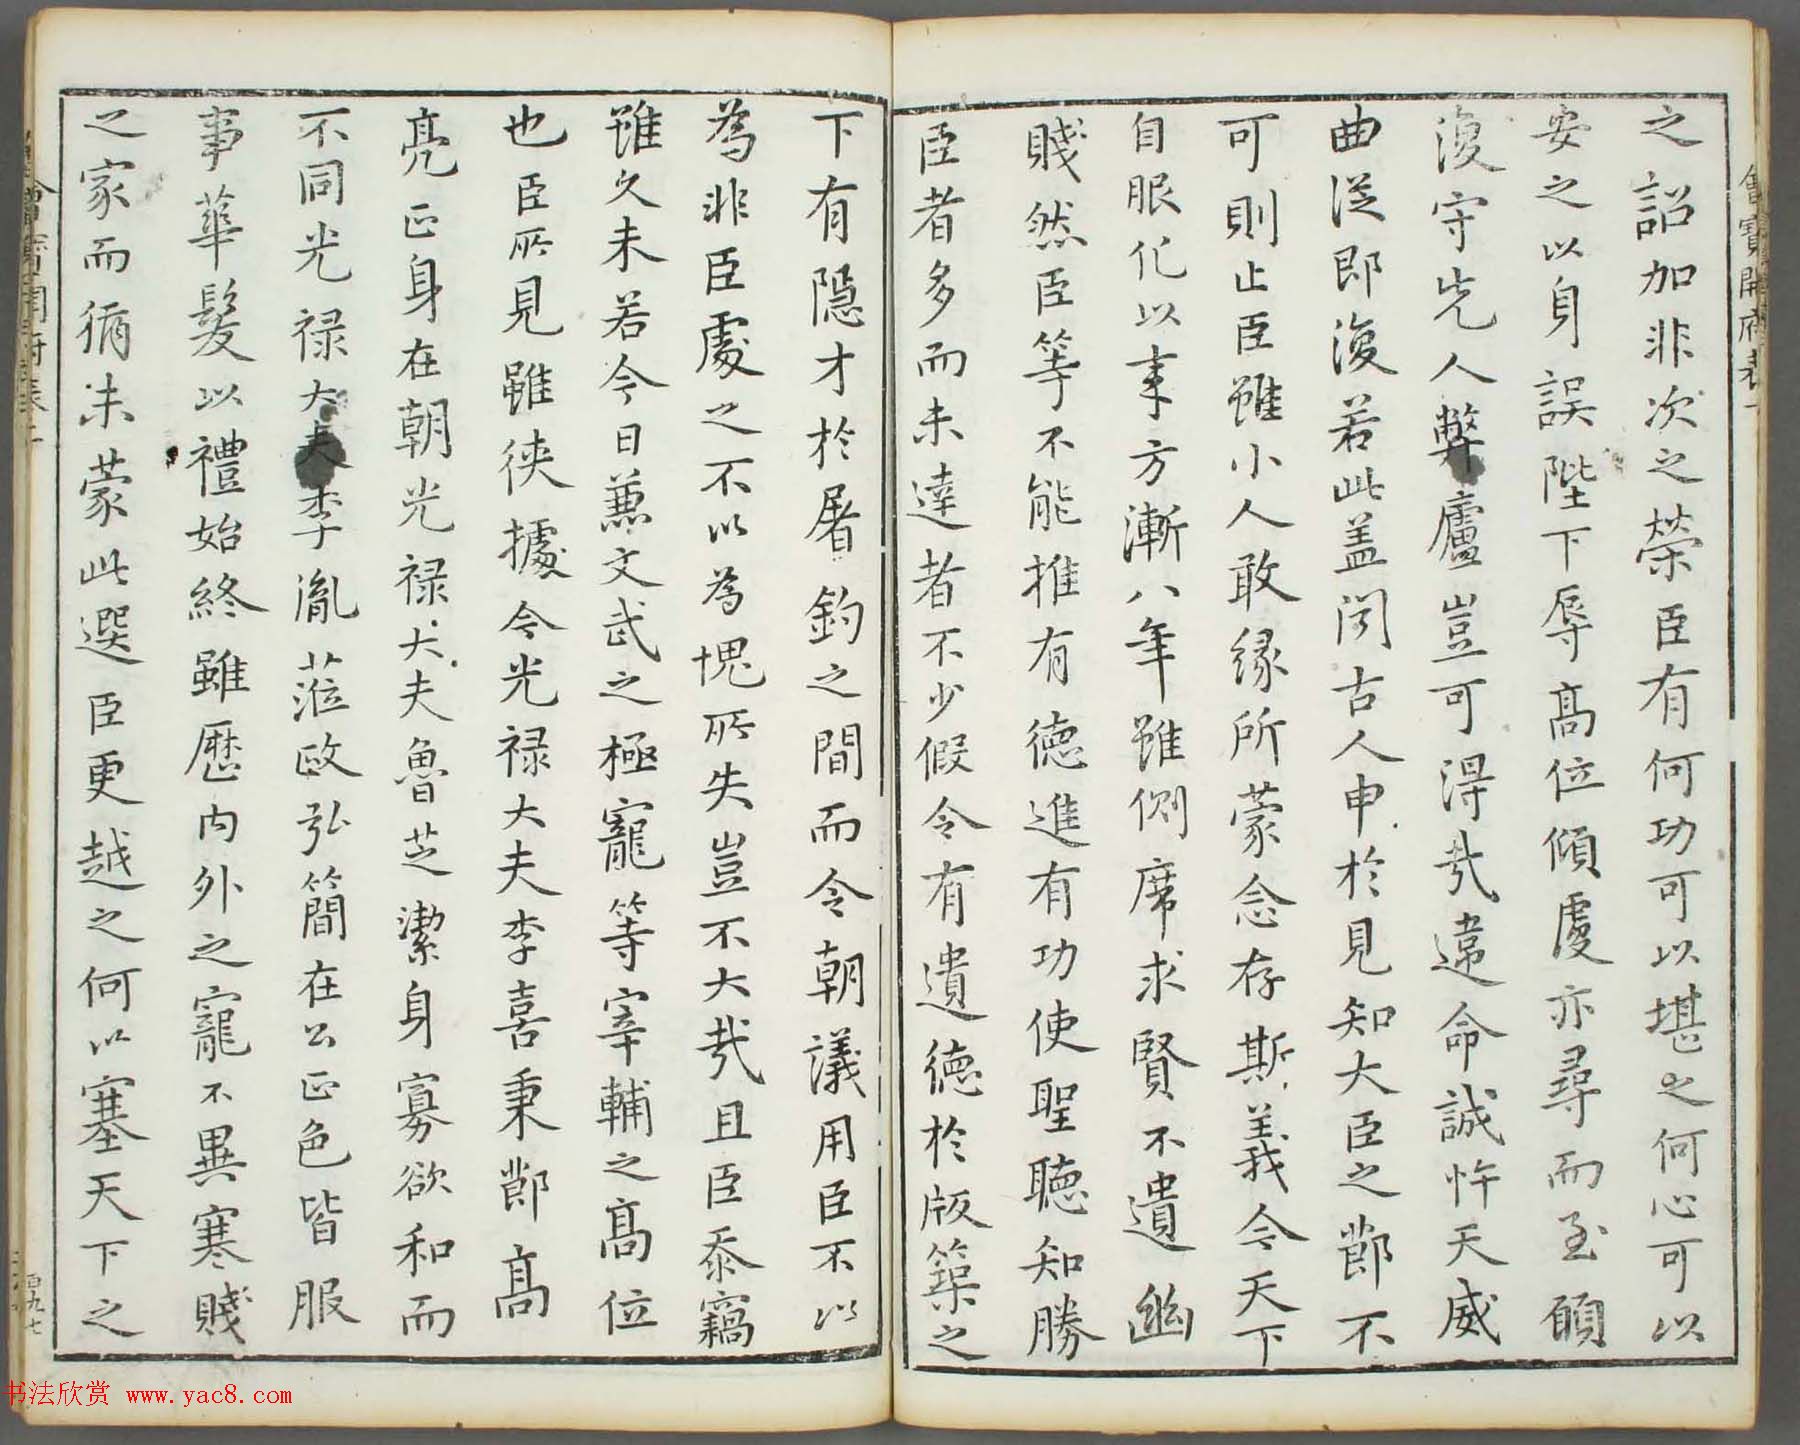 之詔加非次之榮臣有何功可以堪之何心可以
安之以身誤陛下辱髙位傾覆亦尋而至願
復守先人弊廬豈可得㢤違命誠忤天威
曲從即復若此盖聞古人申於見知大臣之節不
可則止臣雖小人敢緣所蒙念存斯義今天下
自服化以来方漸八年雖側席求賢不遺幽
賤然臣等不能推有德進有功使聖聴知勝
臣者多而未達者不少假令有遺德於版築之
下有隠才於屠釣之間而令朝議用臣不以
為非臣處之不以為愧所失豈不大㢤且臣忝竊
雖久未若今日兼文武之極寵等宰輔之髙位
也臣所見雖狹據今光禄大夫李喜秉節髙
亮正身在朝光禄大夫魯芝潔身寡欲和而
不同光禄大夫李胤蒞政弘簡在公正色皆服
事華髮以禮始終雖歷内外之寵不異寒賤
之家而猶未蒙此選臣更越之何以塞天下之
书法欣赏 www.yac8.com